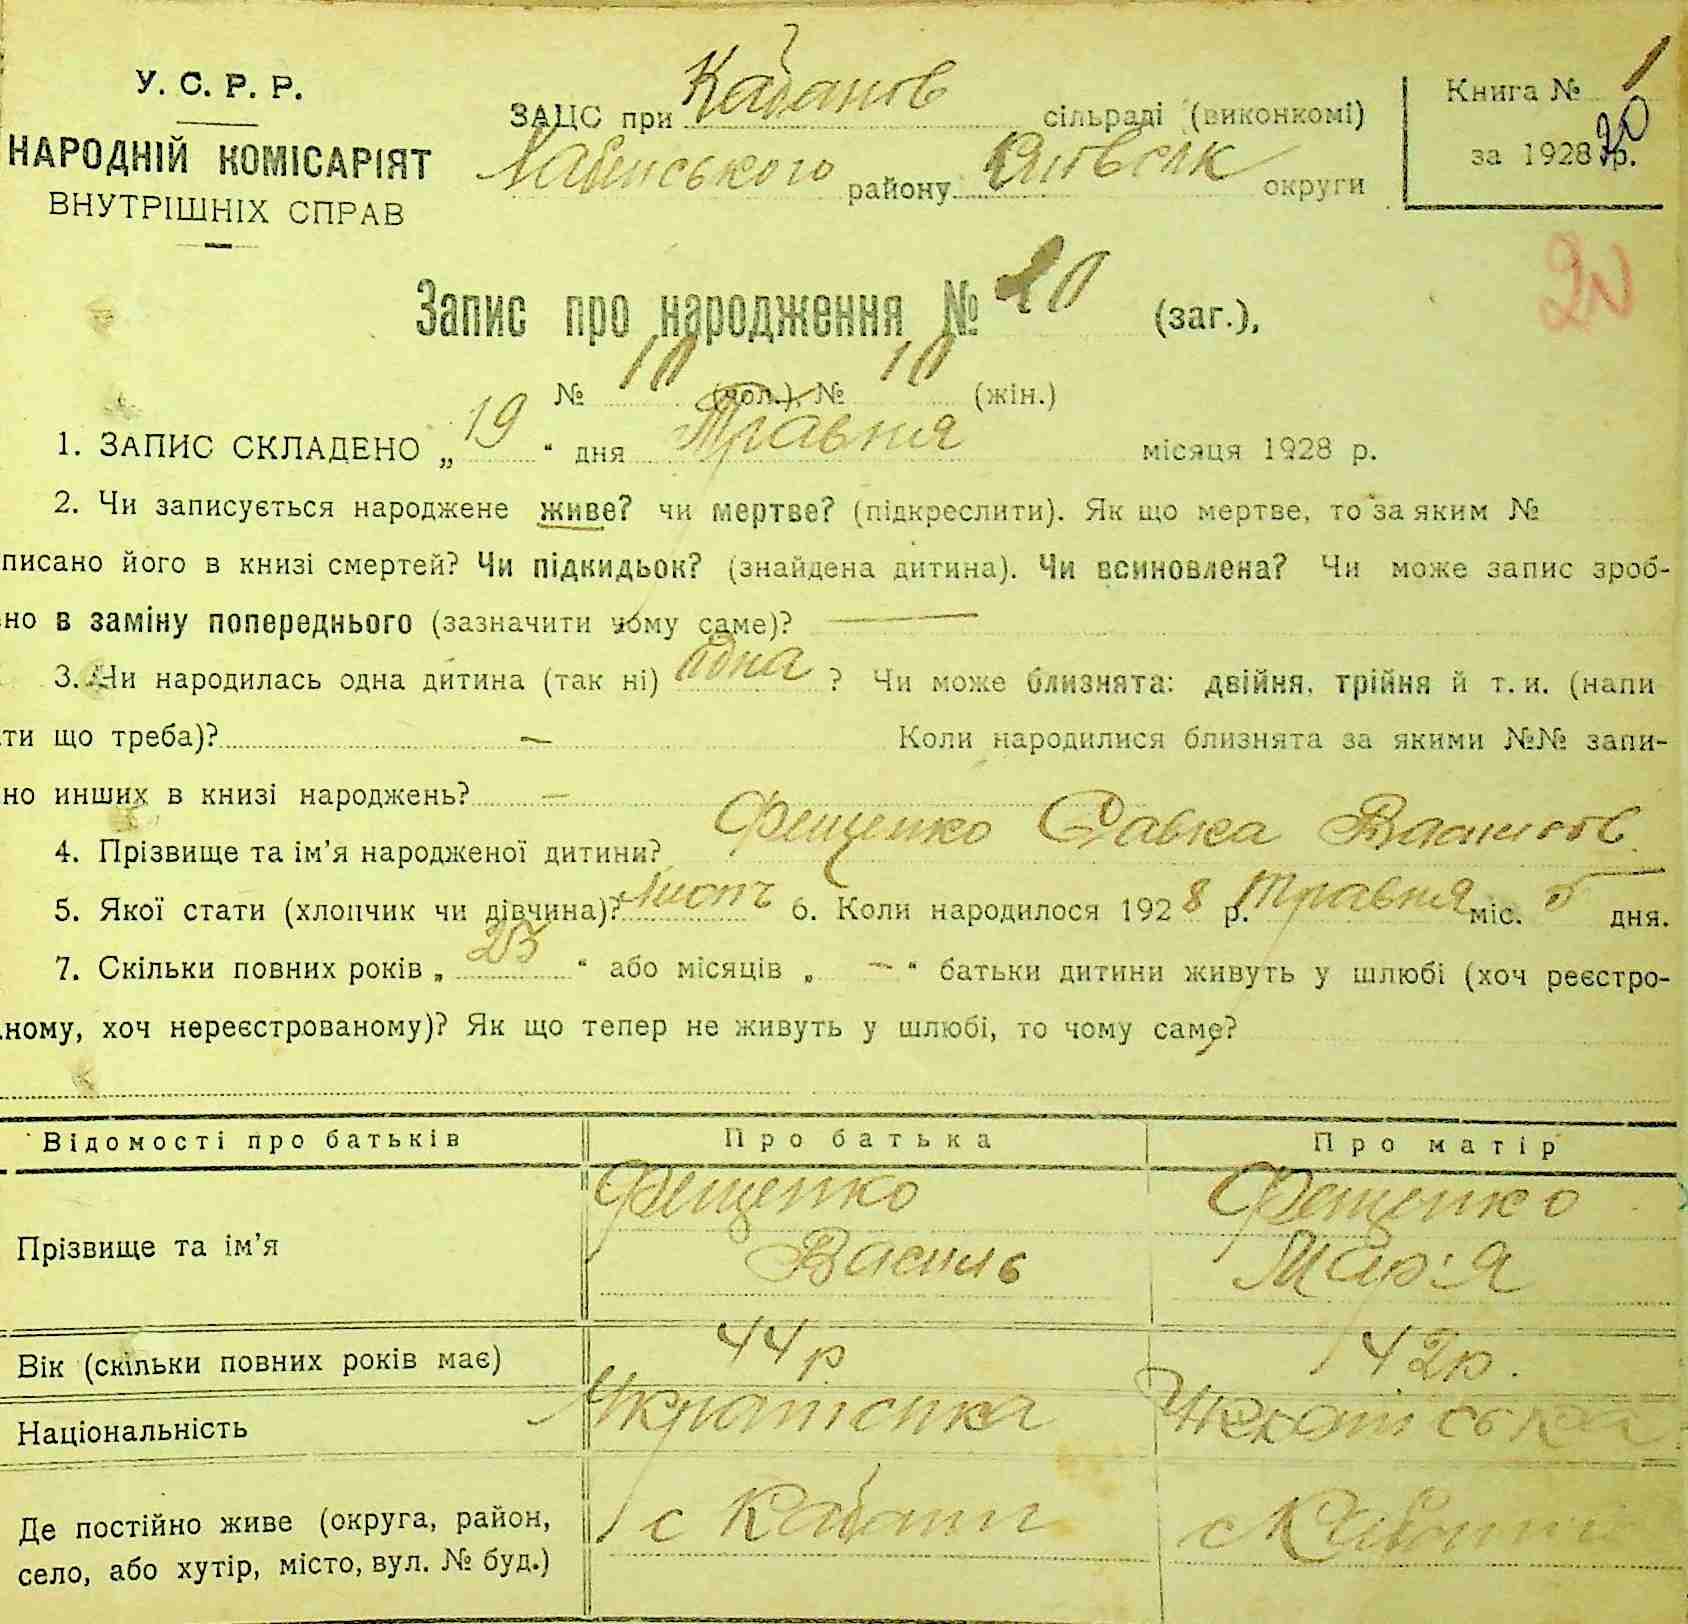 У. С. Р. Р.
НАРОДНІЙ КОМІСАРІЯТ
ВНУТРІШНІХ СПРАВ
ЗАЦС при Кабанов сільраді (виконкомі)
району округи
Книга № 1
за 1928 р.
20
20
Запис про народження № 20 (заг.),
№ 10 (чол.), № 10 (жін.)
1. ЗАПИС СКЛАДЕНО „ 19 “ дня Травня місяця 1928 р.
2. Чи записується народжене живе? чи мертве? (підкреслити). Як що мертве, то за яким №
писано його в книзі смертей? Чи підкидьок? (знайдена дитина). Чи всиновлена? Чи може запис зроб-
но в заміну попереднього (зазначити чому саме)? —
3. Чи народилась одна дитина (так ні) одна ? Чи може близнята: двійня, трійня й т. и. (напи
ти що треба)? — Коли народилися близнята за якими №№ запи-
но инших в книзі народжень? —
4. Прізвище та ім’я народженої дитини? Фещенко Савка Васильов
5. Якої стати (хлопчик чи дівчина)? 6. Коли народилося 1928 р. Травня міс. 5 дня.
7. Скільки повних років „ 25 “ або місяців „ — “ батьки дитини живуть у шлюбі (хоч реєстро-
ному, хоч нереєстрованому)? Як що тепер не живуть у шлюбі, то чому саме?
Відомості про батьків Про батька Про матір
Прізвище та ім’я
Фещенко
Василь
Фещенко
Марія
Вік (скільки повних років має) 44 р 42 р.
Національність Українська Українська
Де постійно живе (округа, район,
село, або хутір, місто, вул. № буд.)
с Кабани с Кабани